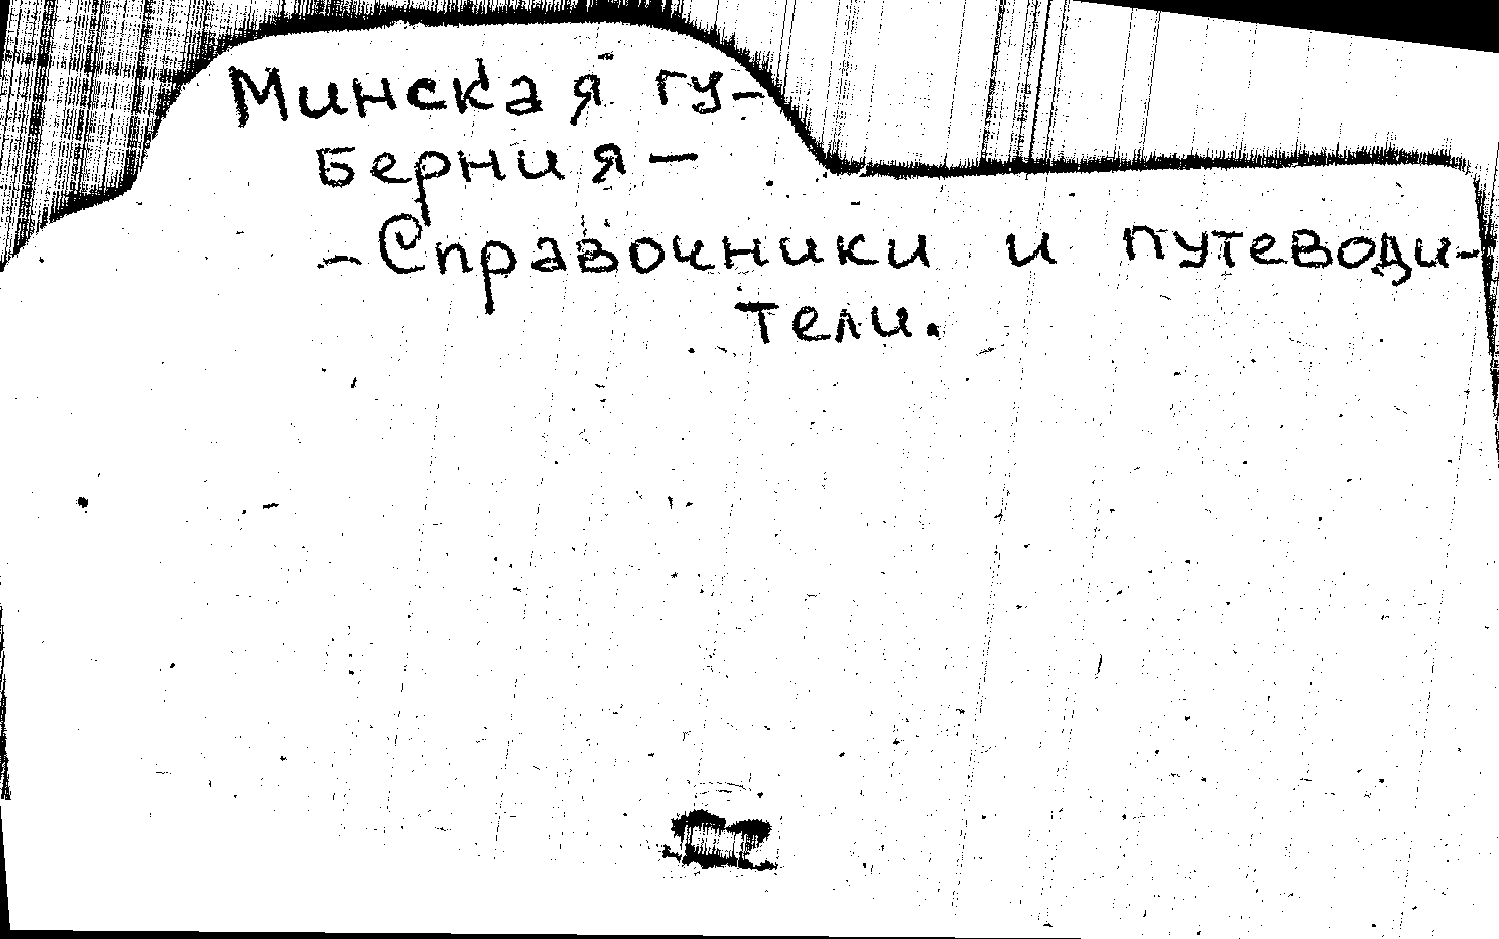 Минская гу-
берния —
- Справочники и путеводи-
тели.